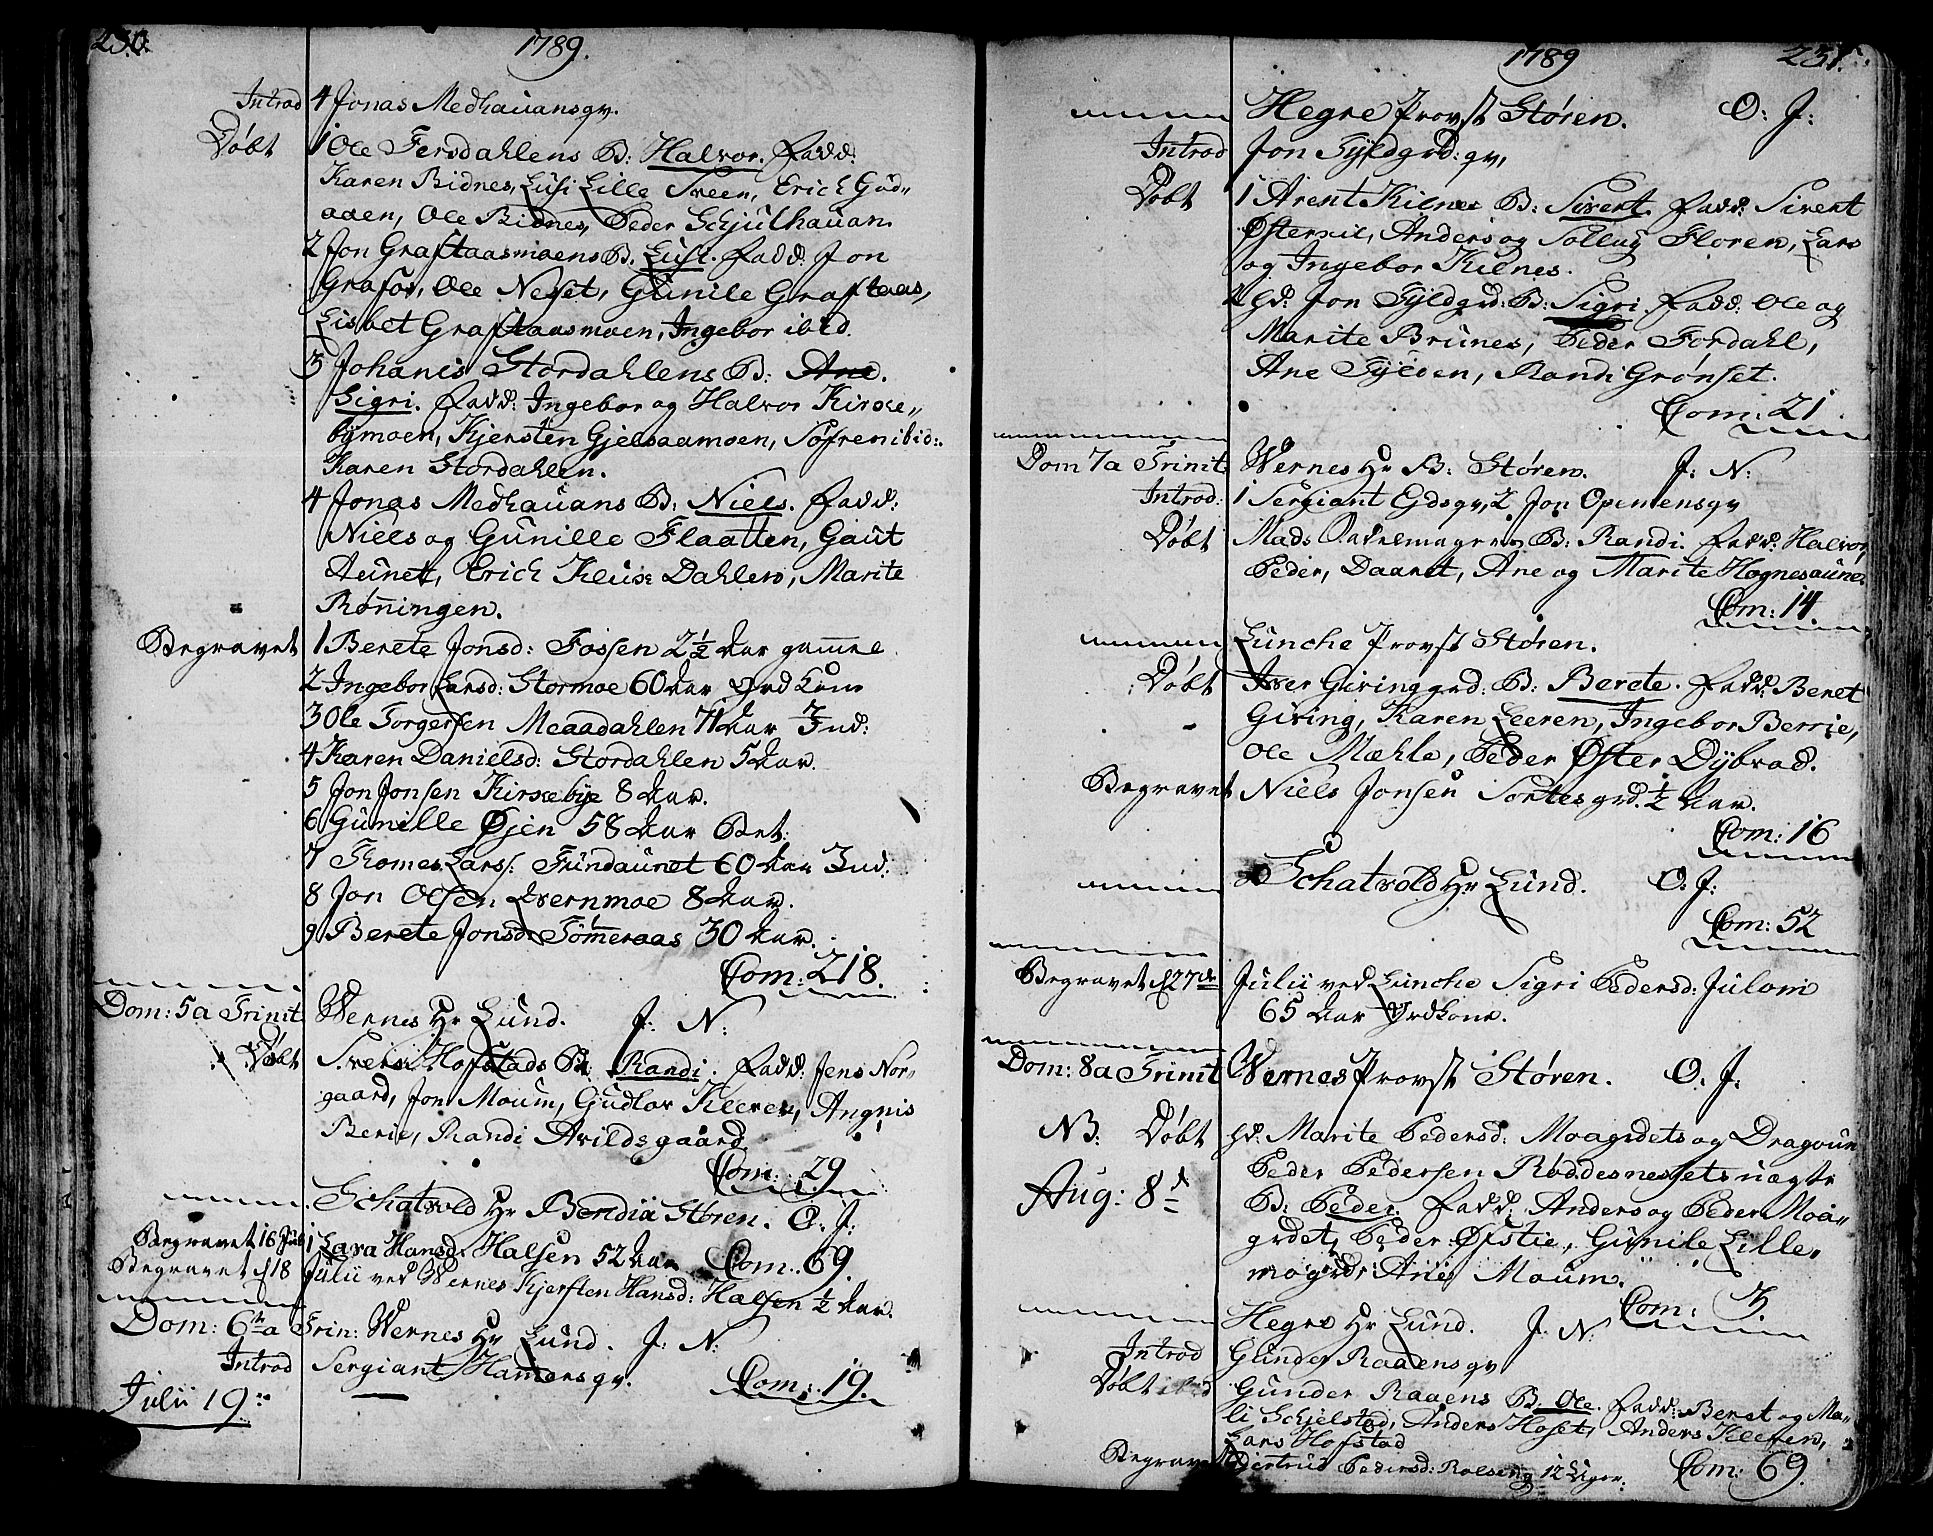 230.
1789.
Introd 4 Jonas Medhauansgv.
Døbt 1 Ole Fersdahlens B: Halvor. Fadd:
Karen Ridnes, Lusi Lille Sveen, Erich Gud„
aaen, Ole Ridnes, Peder Schjulhauan.
2 Jon Grafstaasmoens B. Lusi. Fadd: Jon
Grafos, Ole Neset, Gunile Grafstaas,
Lisbet Grafstaasmoen, Ingebor ibid.
3 Johanis Stordahlens B: Ane.
Sigri. Fadd: Ingebor og Halvor Kirke„
bymoen, Kjersten Gjelsaamoen, Søfren ibid:.
Karen Stordahlen.
4 Jonas Medhauans B: Niels. Fadd:
Niels og Gunille Flaatten, Gaut
Aunet, Erich Kluxe Dahlen, Marite
Røñingen.
Begravet 1 Berete Jonsd: Fossen 2½ Aar gamel
2 Ingebor Larsd: Stormoe 60 Aar Ord Kone
3 Ole Torgersen Meaadahlen 71 Aar Ind:
4 Karen Danielsd: Stordahlen 5 Aar.
5 Jon Jonsen Kirkebye 8 Aar.
6 Gunille Øjen 58 Aar Bet:
7 Thomes Lars: Fundaunet 60 Aar Ind:
8 Jon Olsen Kvernmoe 8 Aar.
9 Berete Jonsd: Tømeraas 30 Aar.
Com: 218.
Dom: 5 a Trinit Wernes Hr Lund. J: N:
Døbt Sven Hofstads B: Randi. Fadd: Jens Nor„
gaard, Jon Moum, Gudlov Kleven, Angnis
Berie, Randi Arildsgaard
Com: 29
Schatvold Hr Bendix Støren. O: J:
Begravet 16 Juli 1 Lava Hansd: Halsen 52 Aar Com: 69.
Begravet d 18 Julii ved Wernes Kjersten Hansd: Halsen ½ Aar.
Dom: 6te a Trin: Wernes Hr Lund. J: N:
Introd Sergiant Hamersgv.
Julii 19de Com: 19.
1789
231.
Hegre Provst Støren. O: J:
Introd Jon Fyldgrd: gv,
Døbt 1 Arent Kilnes B: Sivert. Fadd: Sivert
Østervik, Anders og Sollug Floren, Lars
og Ingebor Kilnes.
2 hd: Jon Fyldgrd: B: Sigri. Fadd: Ole og
Marite Brunes, Peder Fordahl,
Ane Fylden, Randi Grønset.
Com: 21.
Dom 7 a Trinit Wernes Hr B: Støren. J: N:
Introd: 1 Sergiant Eidsgv, 2 Jon Opemensgv
Døbt Mads Sadelmagers B: Randi. Fadd: Halvor,
Peder, Daaret, Ane og Marite Hognesaune
Com: 14.
Lunche Provst Støren.
Døbt Iver Givinggrd. B: Berete. Fadd: Beret
Giving, Karen Leeren, Ingebor Berrie,
Ole Mæhle, Peder Øfter Dybvad.
Begravet Niels Jonsen Sortesgrd. ½ Aar.
Com: 16
Schatvold Hr Lund. O: J:
Com: 52
Begravet d 27de Julii ved Lunche Sigri Pedersd: Julom
65 Aar Ordkone.
Dom: 8 a Trinit Wernes Provst Støren. O: J:
NB: Døbt hd: Marite Pedersd: Moagrdets og Dragoun
Aug: 8d Peder Pedersen Røddesnessets uægte
B: Peder. Fadd: Anders og Peder Moa„
grdet, Peder Øfstie, Gunile Lille„
mogrd: Ane Moum.
Com: 3.
Hegre Hr Lund. J: N:
Introd Gunder Raaensgv
Døbt Gunder Raaens B. Ole. Fadd: Beret og Ma„
li Schjelstad, Anders Hofet, Anders Kleven,
Lars Hofstad
Begravet Giertrud Pedersd: Rolseng 12 Uger. Com: 69.